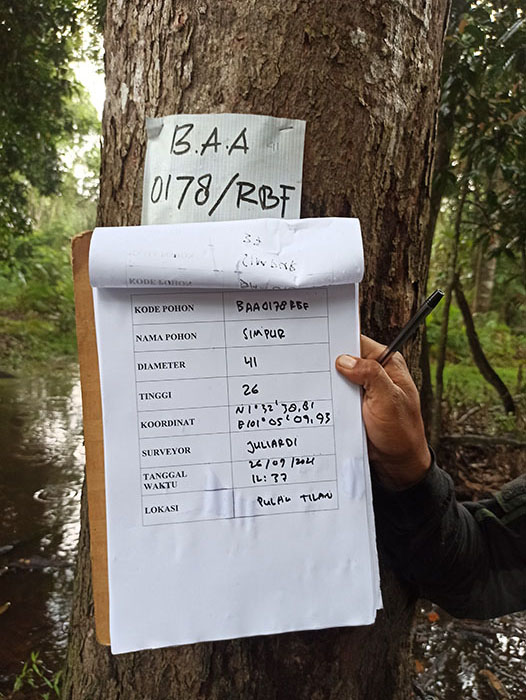 B.A.A
0178/RBF
KODE POHON BAA0178RBF
NAMA POHON SIMPUR
DIAMETER 41
TINGGI 26
KOORDINAT N1°32'38,81
E101°05'09,93
SURVEYOR JULIARDI
TANGGAL 26/09/2021
WAKTU 12:37
LOKASI PULAU TILAN